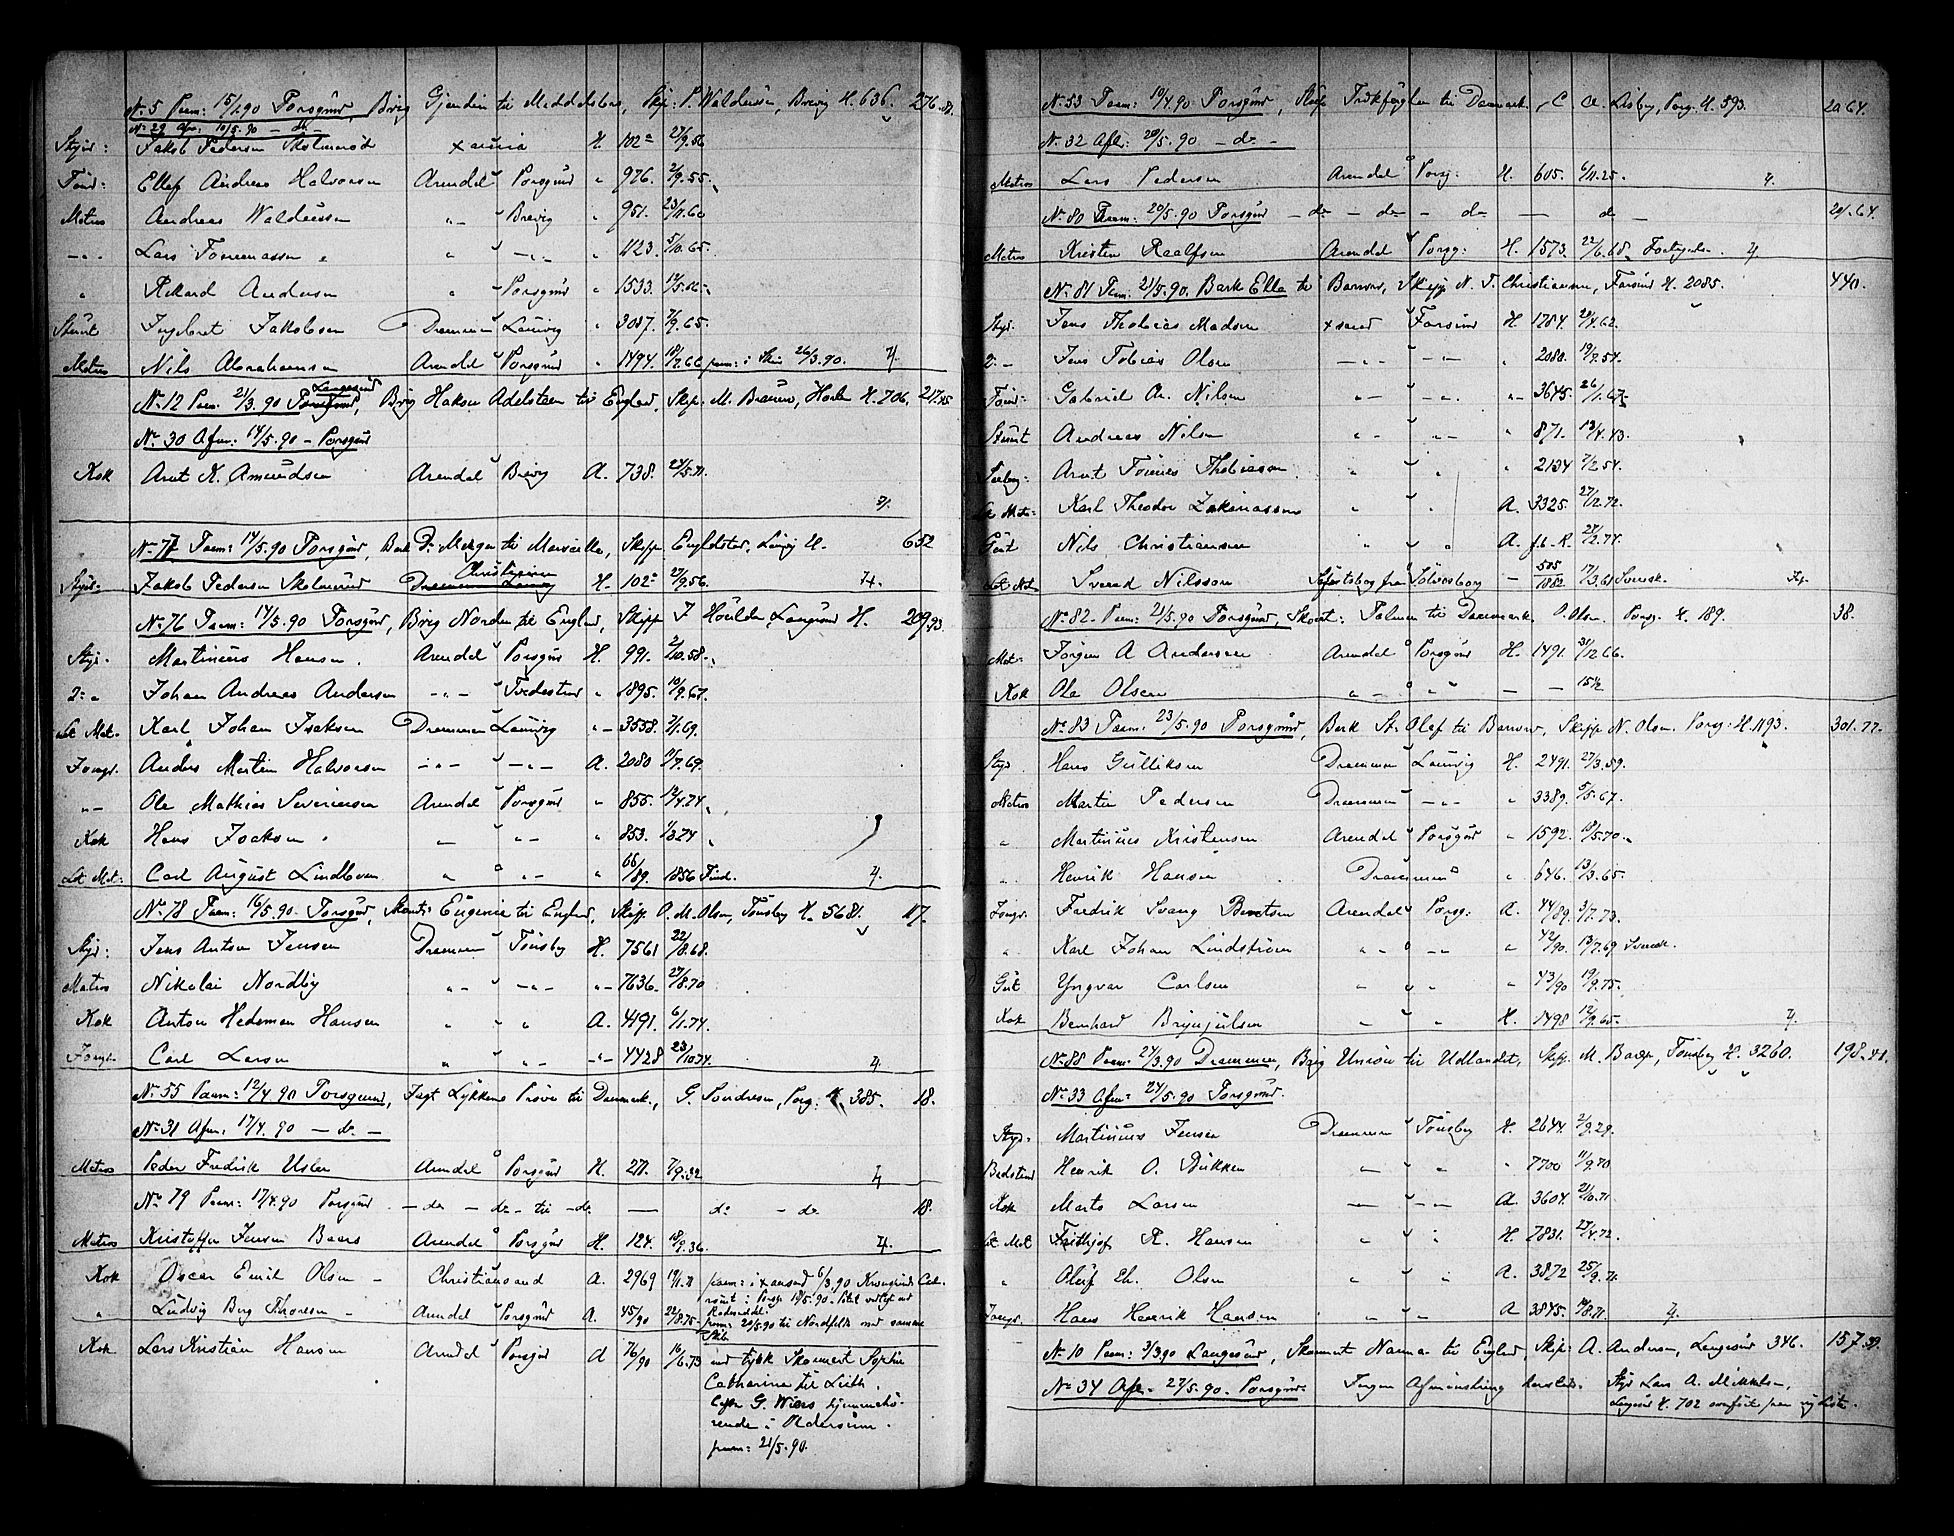 No 5 Paam: 15/1.90 Porsgrund, Brig Gjendin til Middelshav, Skp. P. Waldersen, Brevig H. 636. 276.
No 29 Afm. 10/5.90 - do -
Styrd: Jakob Pedersen Skolmerød Xania H. 102 27/9.56
Tømd: Ellef Andreas Halvorsen Arendal Porsgrund " 976. 2/9.55.
Matros Andreas Waldersen " - Brevig " 951. 23/11.60
- " - Lars Tommassen " " - " - " 1123. 5/10.65.
" Rikard Andersen " Porsgrund " 1533. 14/5.
Stuert Ingebret Jakobsen Drammen Laurvig " 3087. 7/9.65.
Matros Nils Abrahamsen Arendal Porsgrund " 1494. 18/7.66 paam: i Skien 26/3.90. 7.
Langesund
No 12 Paam. 21/3.90 Porsgrund, Brig Hakon Adelsteen til England, Skp. M. Horten H. 706. 217.45
No 30 Afm: 14/5.90 - Porsgrund
Kok Arnt K. Amundsen Arendal Brevig A. 738. 24/5.71.
7.
No 77 Paam: 14/5.90 Porsgrund, Bark til Marseille, Skipp. Laurvig H. 652
Christiania
Styrd: Jakob Pedersen Skolmerød Drammen Laurvig H. 102 27/9.56. 7.
No 76 Paam: 14/5.90 Porsgrund, Brig Norden til England, Skipp J Langesund H. 209.93.
Styr. Martinius Hansen. Arendal Porsgrund H. 991. 2/10.58.
2 " Johan Andreas Andersen - " - Tvedestrand " 1895. 10/9.67.
Let Mat. Karl Johan Isaksen Drammen Laurvig " 3558. 2/1.69.
Jungr. Anders Martin Halvorsen - " - - " - A. 2080 11/7.69.
" - Ole Mathias Severinsen Arendal Porsgrund " 855. 14/4.74
Kok Hans Isaksen " - " - " 853. 1/3.74
Let Mat: Carl August Lindboen " " - " 66/89. 1856 Find. 7.
No 78 Paam: 16/5.90. Porsgrund, Skonnt Eugenie til England, Skipp O. M. Olsen, Tønsberg H. 5681. 117.
Styr: Jens Anton Jensen Drammen Tønsby H. 7561 22/8.68.
Matros Nikolai Nordby " - - " - " - 7636. 27/8.70
Kok Anton Hedeman Hansen " " A. 4191. 6/1.74.
Jungr. Carl Larsen " " - - " - 4428 23/10.74. 7.
No 55 Paam: 12/4.90 Porsgrund, Jagt Lykkens Prøve til Danmark, G. Porg. H. 385. 18.
No 31 Afm. 17/4.90 - do -
Matros Peder Fredrik Usler Arendal Porsgrund H. 271. 7/9.32 7
No 79 Paam: 17/4.90 Porsgrund - do - do - til - do - do - do 18.
Matros Kristoffer Jensen Baars Arendal Porsgrund H. 124. 18/9.36. 7.
Kok Oscar Emil Olsen - Christiansand A. 2969 19/1.71 paam: i Xansand 6/3.90
" Ludvig Berg Thoresen - Arendal Porsgrund A. 45/90 22/8.75 paam: 20/5.90 til Nordfolk med samme
Skib
Kok Lars Kristian Hansen Arendal Porsgrd A 76/90 16/6.73 med tysk Skonnert Sophie
Catharina til Leith.
Capt G. Wiers hjemmehø-
rende i Oldersum.
paam: 21/5.90.
No 53 Paam: 10/4.90 Porsgrund, Slup Trækfuglen til Danmark, C. A. Lisby, Porsg. H. 593. 20.64.
No 32 Afm: 20/5.90 - do -
Matros Lars Pedersen Arendal Porsg: H. 605. 6/11.25. 7.
No 80 Paam: 20/5.90 Porsgrund - do - do - do - do - 20.64.
Matros Kristen Raalfsen Arendal Porsg: H. 1573. 22/6.68. 7.
No 81 Paam: 21/5.90. Bark Ella til Barrow, Skipp N. J. Christiansen, Farsund H. 2085. 440.
Styr. Jens Thobias Madsen Xsand Farsund H. 1784. 20/4.62.
2 - Jens Tobias Olsen - " - - " - " 2080. 19/9.54.
Tømd: Gabriel A. Nilsen " - - " - " - 3645. 26/1.67.
Stuert Andreas Nilsen " - " - " 871. 13/4.43.
Arnt Tønnes Thobiassen " " " 2134 7/2.54.
Let Mat: Karl Theodor Zakariassen " " A. 3325. 27/12.72.
Gut Nils Christiansen " " A. f.l.R. 27/2.74.
Let Mat. Svend Nilsson fra Sølvesborg - 505/1852 17/3.61 Svensk. 7.
No 82. Paam: 21/5.90 Porsgrund, Skovt: Palmen til Danmark, O. Olsen Porsg. H. 189. 38.
Mat: Jørgen A Andersen Arendal Porsgrund H. 1491. 31/12 66.
Kok Ole Olsen " - " " - - 15 1/2
No 83 Paam: 23/5.90 Porsgrund, Bark St. Olaf til Barrow, Skipp N. Olsen. Porsg: H. 1193. 301.77.
Styr. Hans Gulliksen Drammen Laurvig H. 2491. 27/3.59.
Matros Martin Pedersen Drammen - " - " 3389. 5/5.67.
" Martinius Kristensen Arendal Porsgrund " 1592. 18/5.70.
" Henrik Hansen Drammen " 646. 13/3.65.
Jungr. Fredrik Svang Berntsen Arendal Porsg: A. 44/89. 3/7.73.
" Karl Johan Lindstrøm " - " - " 42/90. 13/7.69 Svensk.
Gut Yngvar Carlsen " " " 43/90 19/9.75.
Kok Bernhard Brynjulsen " " H. 1498 12/9.65. 7.
No 88 Paam: 24/3.90 Drammen, Brig Union til Udlandet, Skp. M. Tønsberg H. 3260. 198.41.
No 33 Afm: 24/5.90 Porsgrund.
Styr: Martinius Jensen Drammen Tønsby H. 2644. 2/9.29.
Bedstmd Henrik O. Bukken - " " " 7700 11/9.70
Kok Marto Larsen - - - A. 3604. 21/10.71
Let Mat Frithjof R. Hansen " " H. 7831. 27/4.72.
" Oluf Eh. Olsen " " A. 3872 25/9.71.
Jungr. Hans Henrik Hansen " " - A 3845. 10/8.71. 7.
No 10 Paam: 3/3.90 Langesund, Skonnert Nanna til England, Skip: A. Andersen, Langesund 346. 157.
No 34 Afm. 27/5.90. Porsgrund. Ingen Afmønstring Styr Lars A. Mikkelsen,
Langesund H. 702 overført paa ny Liste.